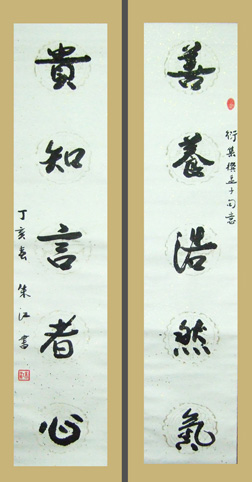 善養浩然氣
衍集撰孟子句意
貴知言者心
丁亥春 朱江書